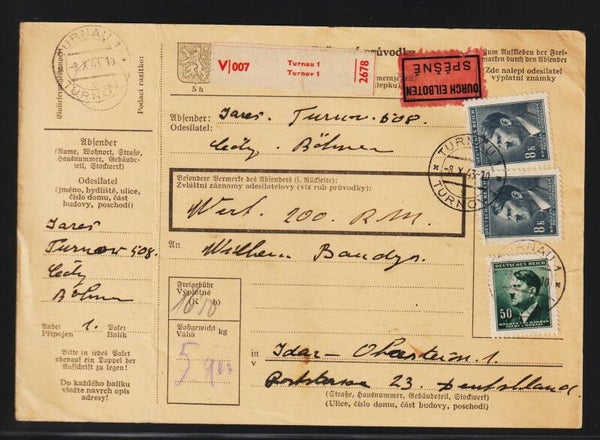 TURNAU 1
-8.X.43-15
TURNOV 1
Podací razítko:
Absender
(Name, Wohnort, Straße,
Hausnummer, Gebäude-
teil, Stockwerk)
Odesílatel
(jméno, bydliště, ulice,
číslo domu, část
budovy, poschodí)
Jareš
Turnov 508.
Böhmen
Anbei 1. Paket
Připojen Balík
Bitte in jedes Paket
obenauf ein Doppel der
Aufschrift zu legen!
Do každého balíku
vložte navrch opis
adresy!
5 h
V 007
Turnau 1
Turnov 1
2678
průvodka
DURCH EILBOTEN
SPĚŠNĚ
Zum Aufkleben der Frei-
marken durch den Absender
Zde nalepí odesílatel
výplatní známky
Absender: Jareš Turnov 508.
Odesílatel:
Böhmen
Besondere Vermerke des Absenders (s. Rückseite):
Zvláštní záznamy odesílatelovy (viz rub průvodky):
Wert. 200. R.M.
An Wilhem
Freigebühr
Výplatné
(K h)
Postgewicht
Váha kg
5
in
v Idar - Oberstein. 1.
23. Deutschland.
(Straße, Hausnummer, Gebäudeteil, Stockwerk)
(Ulice, číslo domu, část budovy, poschodí)
8 K
TURNAU 1
-8.X.43-
TURNOV 1
8 K
DEUTSCHES REICH
50